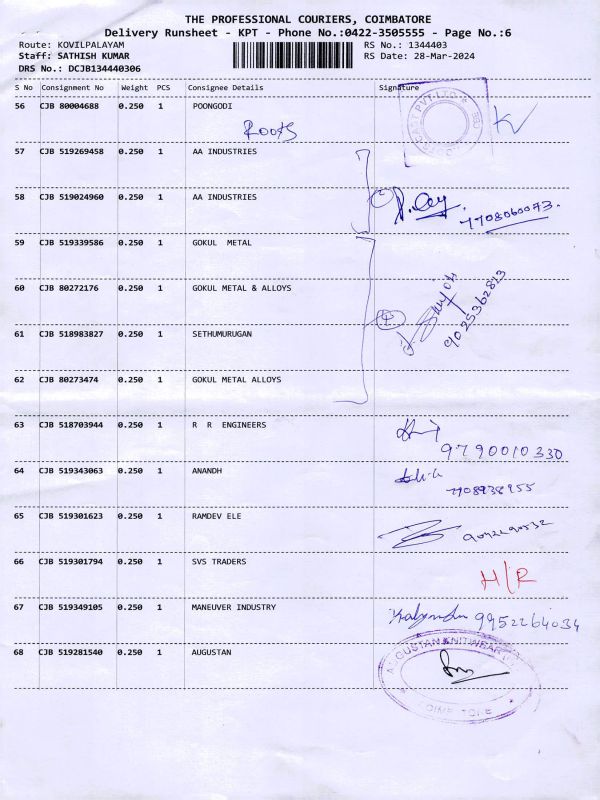 THE PROFESSIONAL COURIERS, COIMBATORE
Delivery Runsheet - KPT - Phone No.:0422-3505555 - Page No.:6
Route: KOVILPALAYAM RS No.: 1344403
Staff: SATHISH KUMAR RS Date: 28-Mar-2024
DRS No.: DCJB134440306
S No Consignment No Weight PCS Consignee Details Signature
56 CJB 80004688 0.250 1 POONGODI
ROOTS
57 CJB 519269458 0.250 1 AA INDUSTRIES
58 CJB 519024960 0.250 1 AA INDUSTRIES
7708060073.
59 CJB 519339586 0.250 1 GOKUL METAL
60 CJB 80272176 0.250 1 GOKUL METAL & ALLOYS
9025362813
61 CJB 518983827 0.250 1 SETHUMURUGAN
62 CJB 80273474 0.250 1 GOKUL METAL ALLOYS
63 CJB 518703944 0.250 1 R R ENGINEERS
9790010330
64 CJB 519343063 0.250 1 ANANDH
65 CJB 519301623 0.250 1 RAMDEV ELE
66 CJB 519301794 0.250 1 SVS TRADERS
H/R
67 CJB 519349105 0.250 1 MANEUVER INDUSTRY
9952264034
68 CJB 519281540 0.250 1 AUGUSTAN
AUGUSTAN KNITWEAR